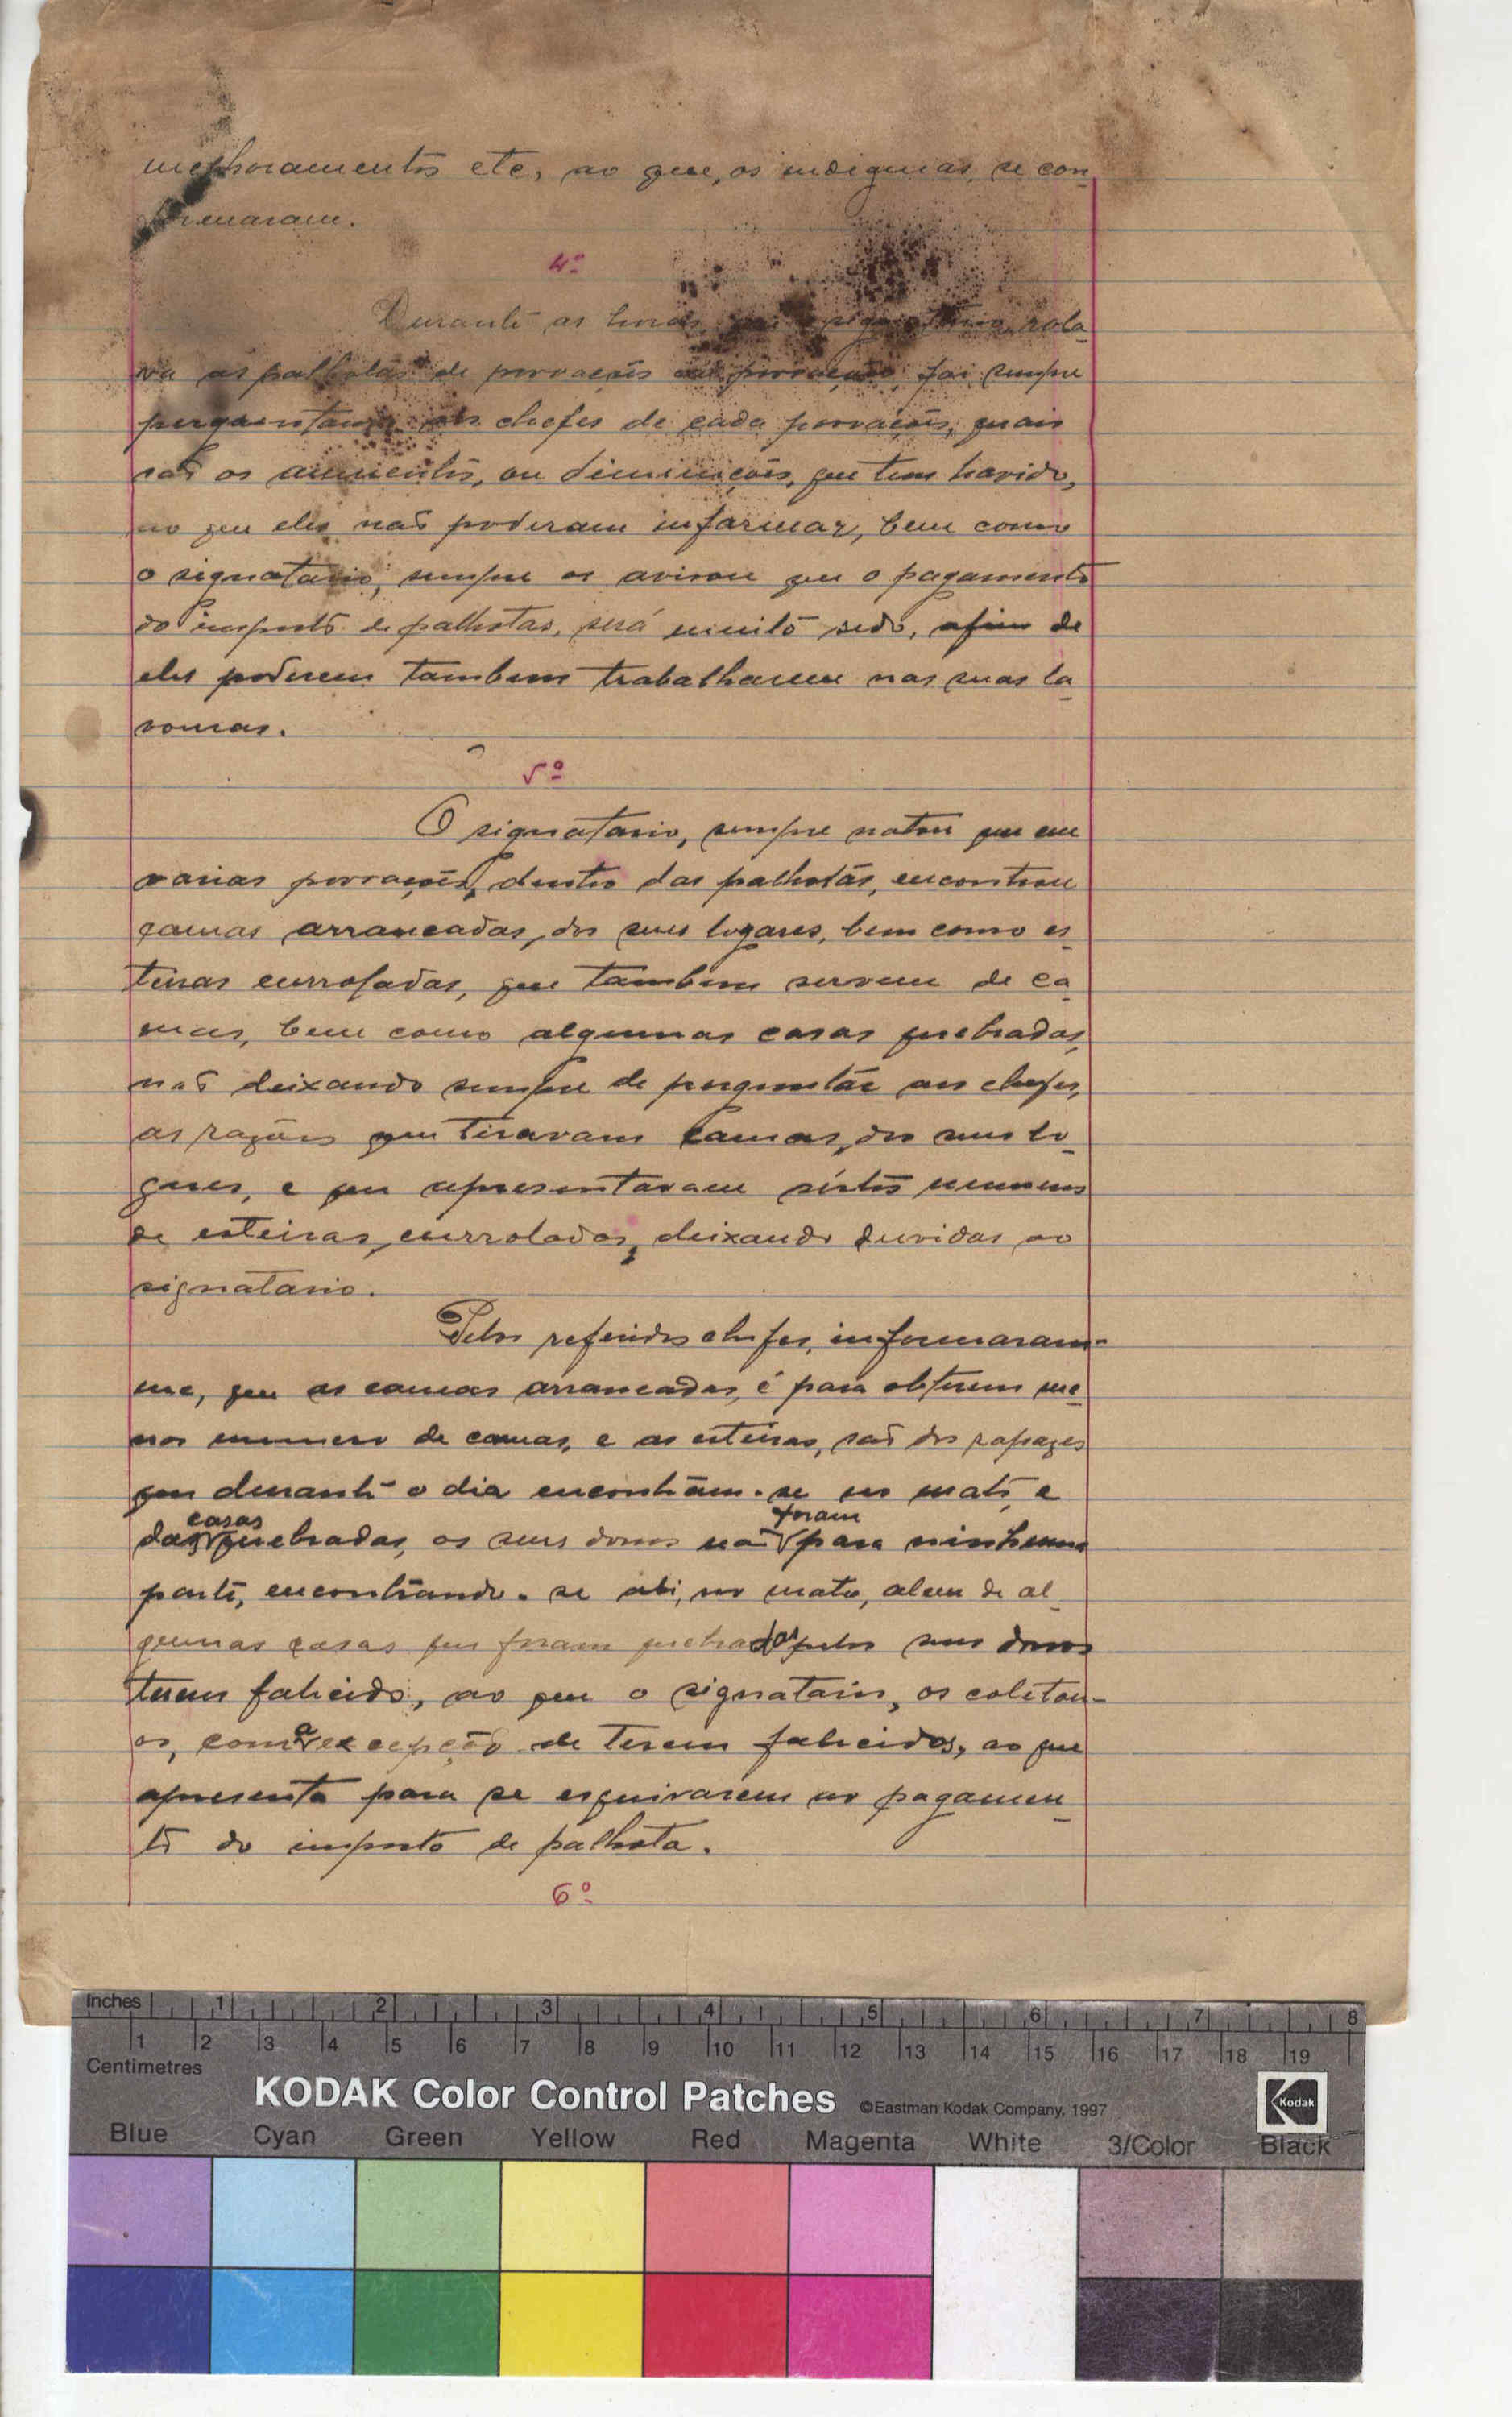 melhoramentos etc, ao que, os indigenas, se con-
formaram.
4º
Durante as horas que o signatario rola-
va as palhotas de povoações em povoações foi sempre
perguntando aos chefes de cada povoações, quais
são os aumentos, ou diminuições, que tem havido,
ao que eles não poderam informar, bem como
o signatario, sempre os avisou que o pagamento
do imposto de palhotas, será muito sedo, afim de
eles poderem tambem trabalharem nas suas la-
vouras.
5º
O signatario, sempre notou que em
varias povoações, dentro das palhotas, encontrou
camas arrancadas, dos seus logares, bem como es-
teiras enrroladas, que tambem servem de ca-
mas, bem como algumas casas quebradas,
não deixando sempre de perguntar aos chefes,
as razões que tiravam camas, dos seus lo-
gares, e que apresentavam sértos numeros
de esteiras, enrroladas, deixando duvidas ao
signatario.
Pelos referidos chefes, informaram-
me, que as camas arrancadas, é para obterem me-
nos numero de camas, e as esteiras, são dos rapazes
que durante o dia encontram-se no mato, e
das casas quebradas, os seus donos não foram para ninhuma
parte, encontrando-se ahi, no mato, alem de al-
gumas casas que foram quebradas pelos seus donos
terem falicido, ao que o signatario, os coletou-
os, com a excepção de terem falicidos, ao que
apresenta para se esquivarem ao pagamen-
to do imposto de palhota.
6º
Inches 1 2 3 4 5 6 7 8
1 2 3 4 5 6 7 8 9 10 11 12 13 14 15 16 17 18 19
Centimetres
KODAK Color Control Patches ©Eastman Kodak Company, 1997 Kodak
Blue Cyan Green Yellow Red Magenta White 3/Color Black